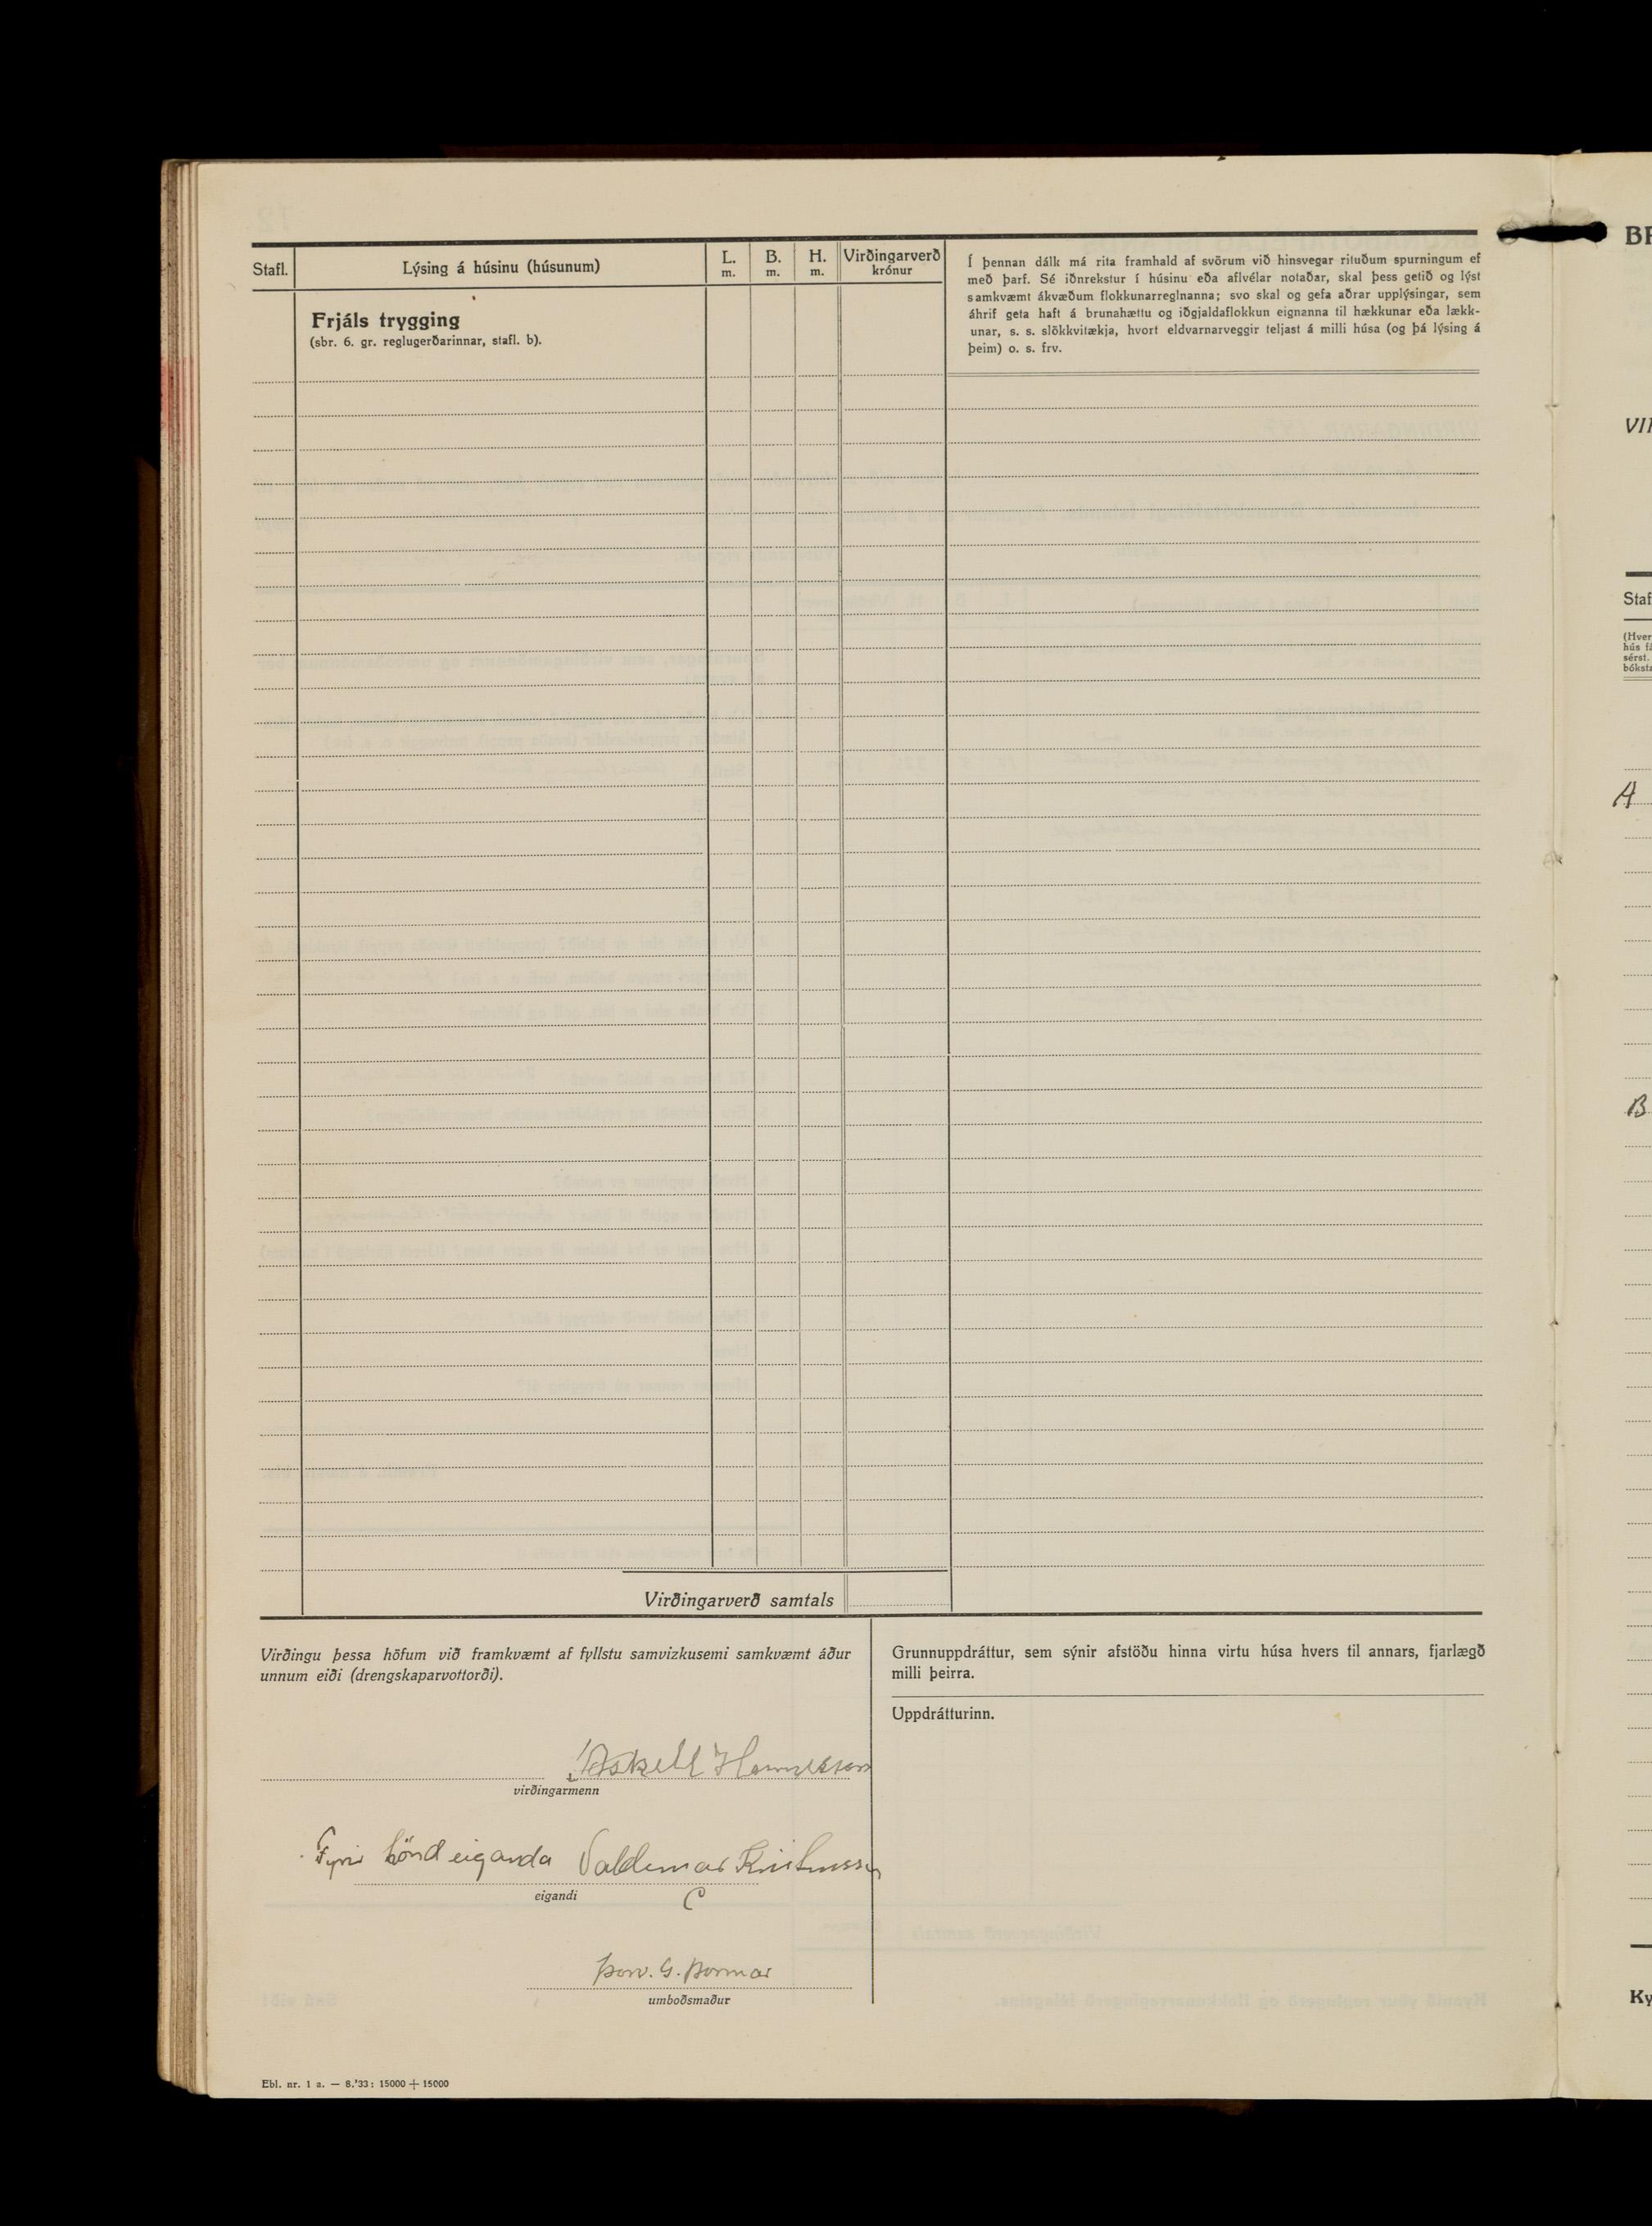 Stafl.
Lýsing á húsinu (húsunum)
L.
m.
B.
m.
H.
m.
Virðingarverð
krónur
Frjáls trygging
(sbr. 6. gr. reglugerðarinnar, stafl. b).
Í þennan dálk má rita framhald af svörum við hinsvegar rituðum spurningum ef
með þarf. Sé iðnrekstur í húsinu eða aflvélar notaðar, skal þess getið og lýst
samkvæmt ákvæðum flokkunarreglnanna; svo skal og gefa aðrar upplýsingar, sem
áhrif geta haft á brunahættu og iðgjaldaflokkun eignanna til hækkunar eða lækk-
unar, s. s. slökkvitækja, hvort eldvarnarveggir teljast á milli húsa (og þá lýsing á
þeim) o. s. frv.
Virðingarverð samtals
Virðingu þessa höfum við framkvæmt af fyllstu samvizkusemi samkvæmt áður
unnum eiði (drengskaparvottorði).
Áskell Hannesson
virðingarmenn
Fyrir hönd eiganda Valdemar
eigandi
Þorv. G. Þormar
umboðsmaður
Grunnuppdráttur, sem sýnir afstöðu hinna virtu húsa hvers til annars, fjarlægð
milli þeirra.
Uppdrátturinn.
Ebl. nr. 1 a. — 8.'33: 15000 + 15000
BR
VIR
Staf
(Hver
hús fá
sérst.
bóksta
A
B
Ky